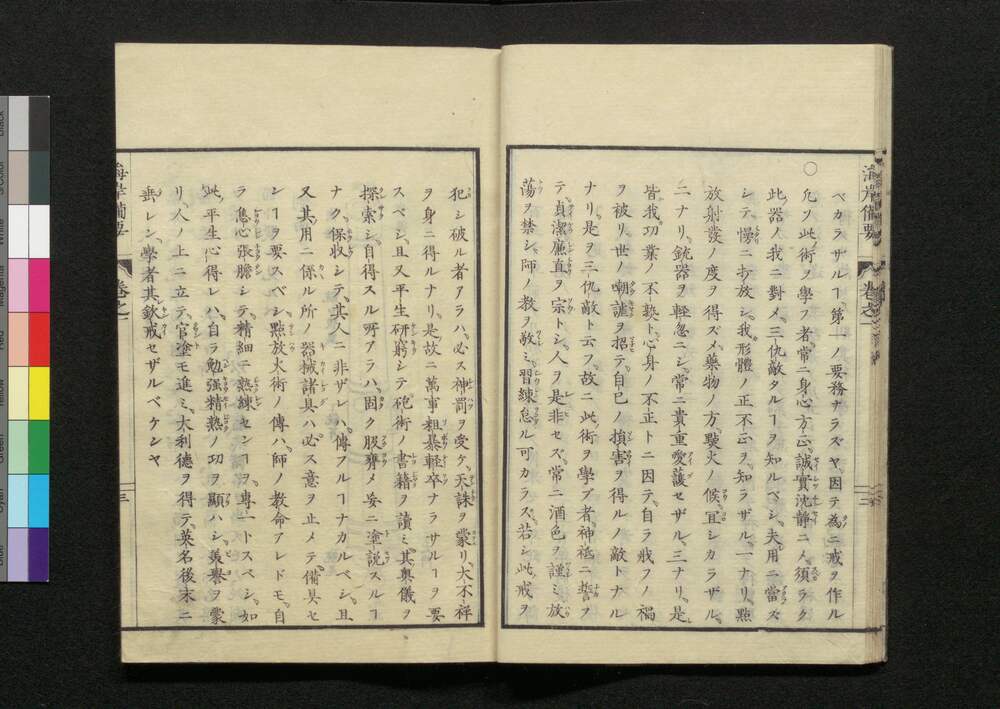 ベカラサルヿ第一ノ要務ナラズヤ因テ為ニ戒ヲ作ル
○凡ソ此術ヲ學フ者常ニ身心方正誠實沈静ニ〆須ラク
此器ノ我ニ對〆三仇敵タルヿヲ知ルベシ夫用ニ當ズ
シテ慢ニ打放シ我形體ノ正不正ヲ知ラザル一ナリ㸃
放射發ノ度ヲ得ズ〆藥物ノ方㸃火ノ候宜シカラザル
二ナリ銃器ヲ輕忽ニシ常ニ貴重愛護セザル三ナリ是
皆我功業ノ不熟ト心身ノ不正トニ因テ自ラ戕フノ禍
ヲ被リ世ノ嘲謔ヲ招テ自已ノ損害ヲ得ルノ敵トナル
ナリ是ヲ三仇敵ト云フ故ニ此術ヲ學ブ者神祗ニ誓ヲ
テ貞潔廉直ヲ宗トシ人ヲ是非セズ常ニ酒色ヲ謹ミ放
蕩ヲ禁シ師ノ教ヲ敬ミ習練怠ル可カラス若シ此戒ヲ
海岸備要
卷之一
三
犯シ破ル者アラハ必ス神罰ヲ受ケ天誅ヲ蒙リ大不祥
ヲ身ニ得ルナリ是故ニ萬事粗暴輕卒ナラサルヿヲ要
スベシ且又平生研窮シテ砲術ノ書籍ヲ讀ミ其奥儀ヲ
探索シ自得スル所アラハ固ク服膺〆妄ニ塗説スルヿ
ナク保收シテ其人ニ非ザレハ傳フルヿナカルベシ且
又其用ニ係ル所ノ器械諸具ハ必ス意ヲ止メテ備具セ
シヿヲ要スベシ㸃放火術ノ傳ハ師ノ教命アレドモ自
ラ息心張膽シテ精細ニ熟練センヿヲ專一トスベシ如
此平生心得レハ自ラ勉強精熟ノ功ヲ顯ハシ羨譽ヲ蒙
リ人ノ上ニ立テ官塗モ進ミ大利德ヲ得テ英名後末ニ
垂レン學者其欽戒セザルベケンヤ
海岸備要
卷之一
三